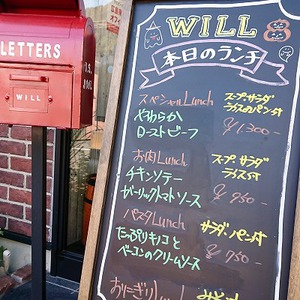 LETTERS
WILL
WILL
本日のランチ
スペシャルLunch
やわらか
ローストビーフ
スープ、サラダ
ライスorパン付
¥1,300-
お肉Lunch
チキンソテー
ガーリックトマトソース
スープ、サラダ
ライス付
¥950-
パスタLunch
たっぷりキノコと
ベーコンのクリームソース
サラダ・パン付
¥950-
おにぎりLunch